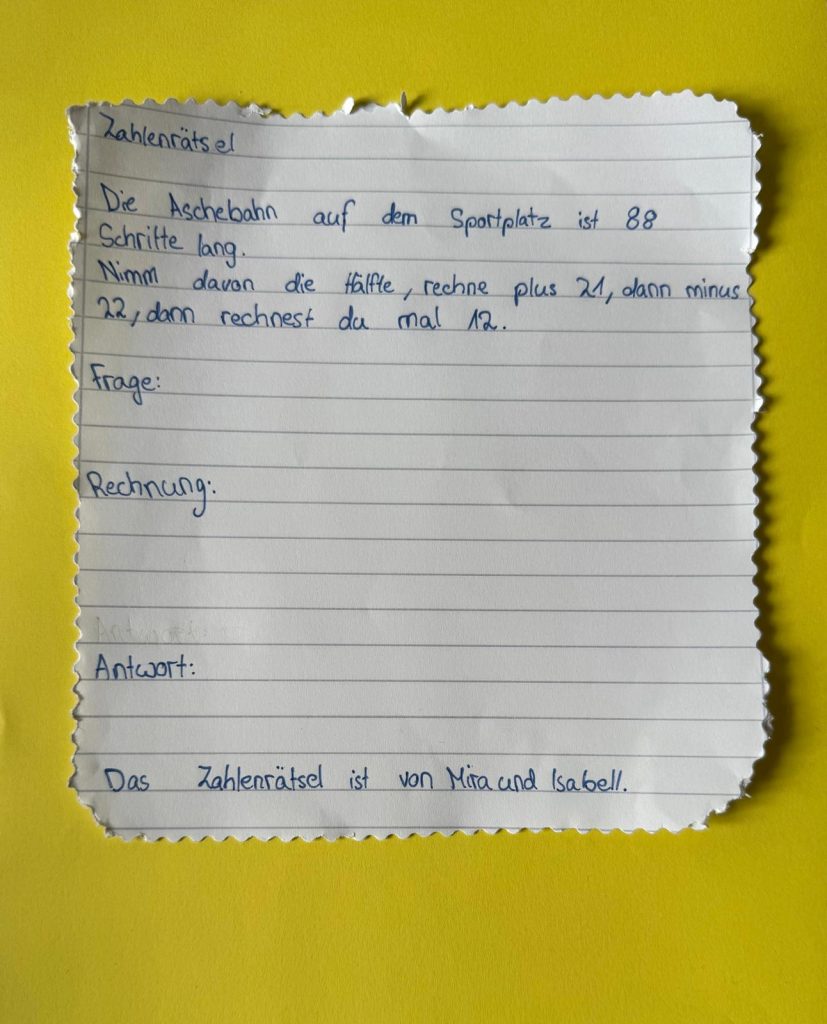 Zahlenrätsel
Die Aschebahn auf dem Sportplatz ist 88
Schritte lang.
Nimm davon die Hälfte, rechne plus 21, dann minus
22, dann rechnest du mal 12.
Frage:
Rechnung:
Antwort:
Antwort:
Das Zahlenrätsel ist von Mira und Isabell.